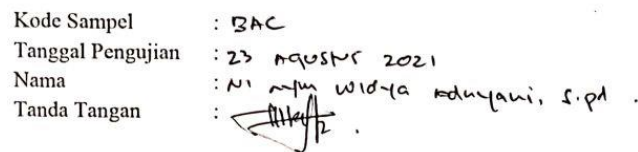 Kode Sampel : BAC
Tanggal Pengujian : 23 Agustus 2021
Nama : Ni Widya S.pd .
Tanda Tangan :